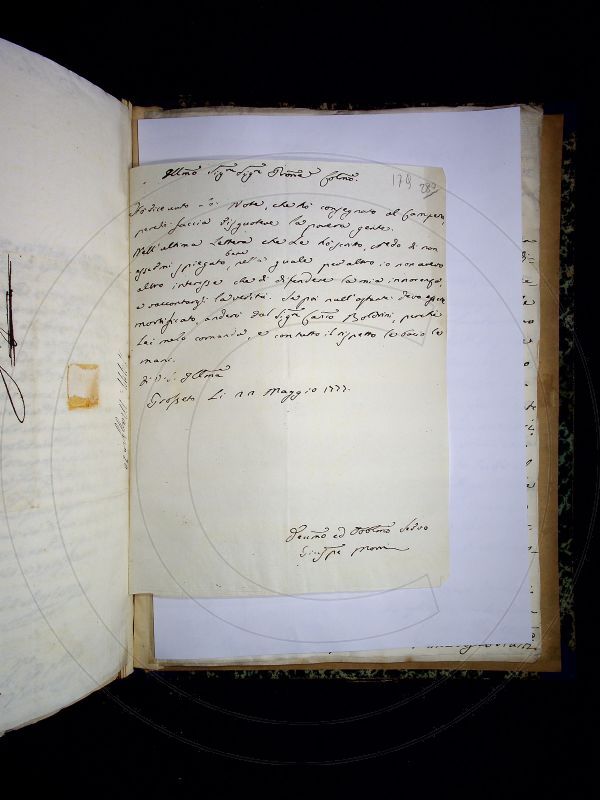 Illmo Sigre Sigre Prone Colmo.
178 287
consegnato al Campani,
perché faccia disgustare la povera gente.
Nell'ultima lettera che Le ho scritto, credo di non
essermi spiegato bene, nella quale per altro io non avevo
altro interesse che di difendere la mia innocenza,
e raccontargli la verità. Se poi null'ostante devo essere
mortificato, anderò dal Sigre Boldrini, perché
Lei me lo comanda, e con tutto il rispetto le bacio le
mani.
di V. S. Illma
Grosseto Li 11 Maggio 1777.
Devmo ed Obblmo Servo
Giuseppe